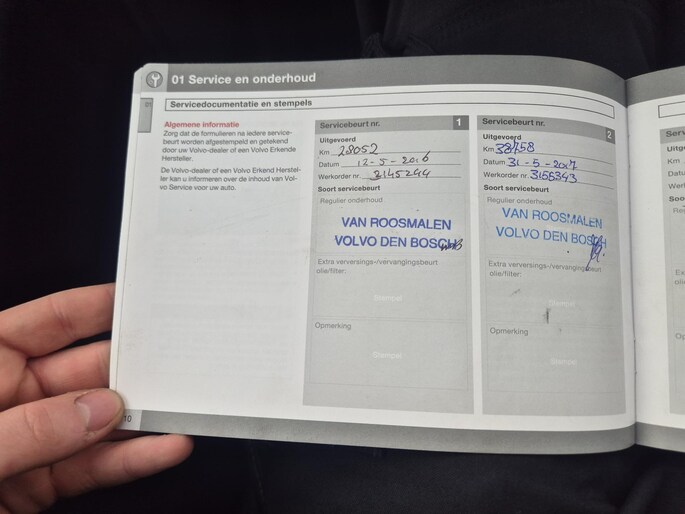 01 Service en onderhoud
01
Servicedocumentatie en stempels
Algemene informatie
Zorg dat de formulieren na iedere service-
beurt worden afgestempeld en getekend
door uw Volvo-dealer of een Volvo Erkende
Hersteller.
De Volvo-dealer of een Volvo Erkend Herstel-
ler kan u informeren over de inhoud van Vol-
vo Service voor uw auto.
Servicebeurt nr. 1
Uitgevoerd
Km 28052
Datum 12-5-2016
Werkorder nr. 3145244
Soort servicebeurt
Regulier onderhoud
VAN ROOSMALEN
VOLVO DEN BOSCH
Extra verversings-/vervangingsbeurt
olie/filter:
Stempel
Opmerking
Stempel
Servicebeurt nr. 2
Uitgevoerd
Km 38758
Datum 31-5-2017
Werkorder nr. 3156343
Soort servicebeurt
Regulier onderhoud
VAN ROOSMALEN
VOLVO DEN BOSCH
Extra verversings-/vervangingsbeurt
olie/filter:
Stempel
Opmerking
Stempel
10